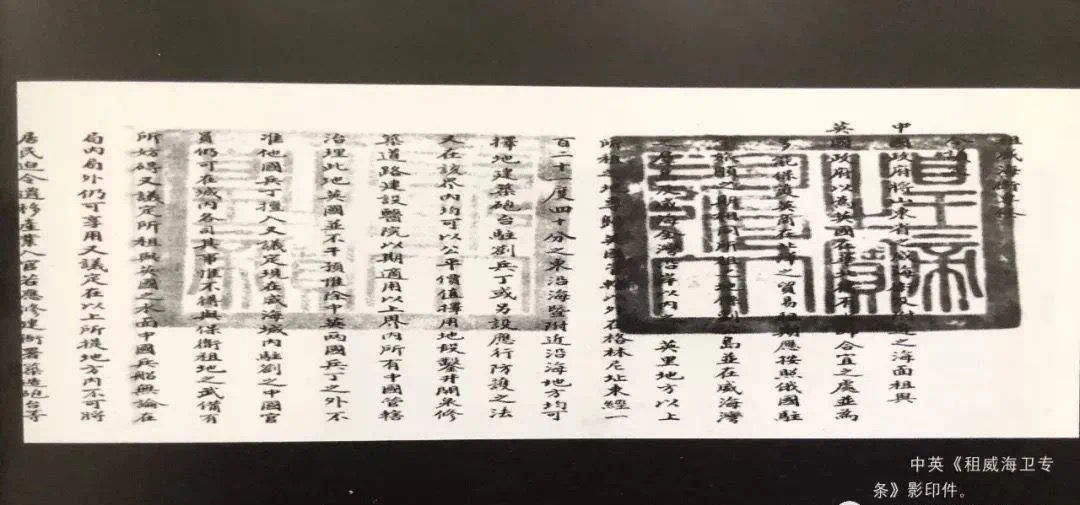 租威海衛專條
今議定
中國政府將山東省之威海衛及附近之海面租與
英國政府以為英國在華北得有水師合宜之處並為
多能保護英商在北洋之貿易租期應按照俄國駐
守旅順之期相同所租之地係劉公島並在威海灣
之群島及威海全灣沿岸以內之英里地方以上
所租之地專歸英國管轄此外在格林尼址東經一
百二十一度四十分之東沿海暨附近沿海地方均可
擇地建築砲台駐劄兵丁或另設應行防護之法
又在該界內均可以公平價值擇用地段鑿井開泉修
築道路建設醫院以期適用以上界內所有中國管轄
治理此地英國並不干預惟除中英兩國兵丁之外不
准他國兵丁擅入又議定現在威海城內駐劄之中國官
員仍可在城內各司其事惟不得與保衛租地之武備有
所妨礙又議定所租與英國之水面中國兵船無論在
局內局外仍可享用又議定在以上所提地方內不可將
居民迫令遷移產業入官若應修建衙署築造砲台等
皇帝之寶
中英《租威海卫专
条》影印件。